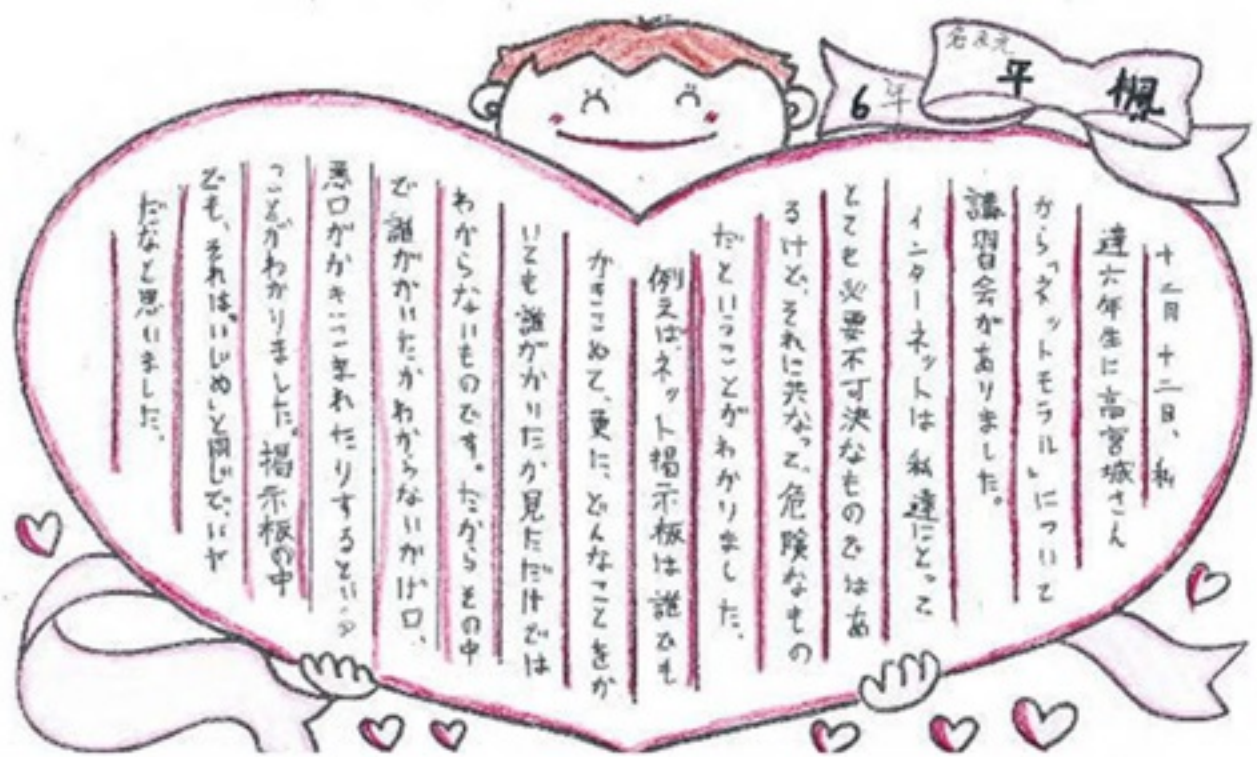 6年
平 楓
十二月十二日、私
達六年生に高宮城さん
から「ネットモラル」について
講習会がありました。
インターネットは私達にとって
とても必要不可決なものではあ
るけど、それに共なって、危険なもの
だということがわかりました。
例えば、ネット掲示板は誰でも
かきこめて、更に、どんなことをか
いても誰がかいたか見ただけでは
わからないものです。だからその中
で誰がかいたかわからないかげ口、
悪口がかきこまれたりするという
ことがわかりました。掲示板の中
でも、それは、「いじめ」と同じで、いや
だなと思いました。